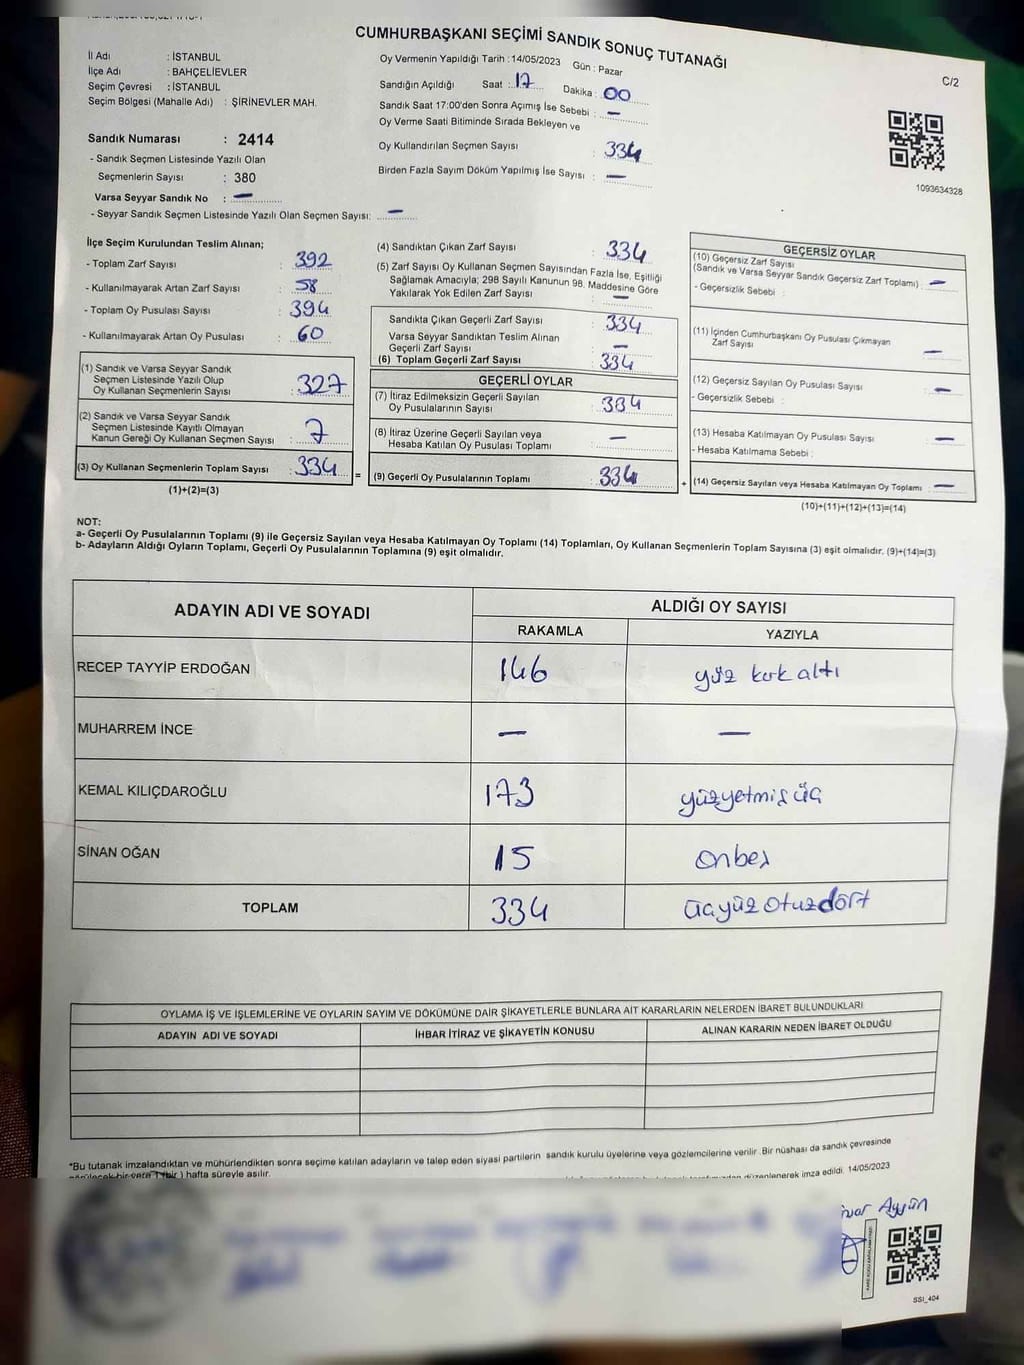 CUMHURBAŞKANI SEÇİMİ SANDIK SONUÇ TUTANAĞI
C/2
İl Adı : İSTANBUL
İlçe Adı : BAHÇELİEVLER
Seçim Çevresi : İSTANBUL
Seçim Bölgesi (Mahalle Adı) : ŞİRİNEVLER MAH.
Sandık Numarası : 2414
- Sandık Seçmen Listesinde Yazılı Olan
Seçmenlerin Sayısı : 380
Varsa Seyyar Sandık No : —
- Seyyar Sandık Seçmen Listesinde Yazılı Olan Seçmen Sayısı: —
Oy Vermenin Yapıldığı Tarih : 14/05/2023 Gün : Pazar
Sandığın Açıldığı Saat : 17 Dakika : 00
Sandık Saat 17:00'den Sonra Açımış İse Sebebi : —
Oy Verme Saati Bitiminde Sırada Bekleyen ve
Oy Kullandırılan Seçmen Sayısı : 334
Birden Fazla Sayım Döküm Yapılmış İse Sayısı : —
1093634328
İlçe Seçim Kurulundan Teslim Alınan;
- Toplam Zarf Sayısı : 392
- Kullanılmayarak Artan Zarf Sayısı : 58
- Toplam Oy Pusulası Sayısı : 394
- Kullanılmayarak Artan Oy Pusulası : 60
(1) Sandık ve Varsa Seyyar Sandık
Seçmen Listesinde Yazılı Olup
Oy Kullanan Seçmenlerin Sayısı : 327
(2) Sandık ve Varsa Seyyar Sandık
Seçmen Listesinde Kayıtlı Olmayan
Kanun Gereği Oy Kullanan Seçmen Sayısı : 7
(3) Oy Kullanan Seçmenlerin Toplam Sayısı : 334 =
(1)+(2)=(3)
(4) Sandıktan Çıkan Zarf Sayısı : 334
(5) Zarf Sayısı Oy Kullanan Seçmen Sayısından Fazla İse, Eşitliği
Sağlamak Amacıyla; 298 Sayılı Kanunun 98. Maddesine Göre
Yakılarak Yok Edilen Zarf Sayısı : —
Sandıkta Çıkan Geçerli Zarf Sayısı : 334
Varsa Seyyar Sandıktan Teslim Alınan
Geçerli Zarf Sayısı : —
(6) Toplam Geçerli Zarf Sayısı : 334
GEÇERLİ OYLAR
(7) İtiraz Edilmeksizin Geçerli Sayılan
Oy Pusulalarının Sayısı : 334
(8) İtiraz Üzerine Geçerli Sayılan veya
Hesaba Katılan Oy Pusulası Toplamı : —
(9) Geçerli Oy Pusulalarının Toplamı : 334 +
GEÇERSİZ OYLAR
(10) Geçersiz Zarf Sayısı
(Sandık ve Varsa Seyyar Sandık Geçersiz Zarf Toplamı) : —
- Geçersizlik Sebebi :
(11) İçinden Cumhurbaşkanı Oy Pusulası Çıkmayan
Zarf Sayısı : —
(12) Geçersiz Sayılan Oy Pusulası Sayısı : —
- Geçersizlik Sebebi :
(13) Hesaba Katılmayan Oy Pusulası Sayısı : —
- Hesaba Katılmama Sebebi :
(14) Geçersiz Sayılan veya Hesaba Katılmayan Oy Toplamı : —
(10)+(11)+(12)+(13)=(14)
NOT:
a- Geçerli Oy Pusulalarının Toplamı (9) ile Geçersiz Sayılan veya Hesaba Katılmayan Oy Toplamı (14) Toplamları, Oy Kullanan Seçmenlerin Toplam Sayısına (3) eşit olmalıdır. (9)+(14)=(3)
b- Adayların Aldığı Oyların Toplamı, Geçerli Oy Pusulalarının Toplamına (9) eşit olmalıdır.
ADAYIN ADI VE SOYADI ALDIĞI OY SAYISI
RAKAMLA YAZIYLA
RECEP TAYYİP ERDOĞAN 146 yüz kırk altı
MUHARREM İNCE — —
KEMAL KILIÇDAROĞLU 173 yüzyetmiş üç
SİNAN OĞAN 15 onbeş
TOPLAM 334 üçyüz otuzdört
OYLAMA İŞ VE İŞLEMLERİNE VE OYLARIN SAYIM VE DÖKÜMÜNE DAİR ŞİKAYETLERLE BUNLARA AİT KARARLARIN NELERDEN İBARET BULUNDUKLARI
ADAYIN ADI VE SOYADI İHBAR İTİRAZ VE ŞİKAYETİN KONUSU ALINAN KARARIN NEDEN İBARET OLDUĞU
*Bu tutanak imzalandıktan ve mühürlendikten sonra seçime katılan adayların ve talep eden siyasi partilerin sandık kurulu üyelerine veya gözlemcilerine verilir. Bir nüshası da sandık çevresinde
hafta süreyle asılır.
düzenlenerek imza edildi. 14/05/2023
Aygün
SSI_404